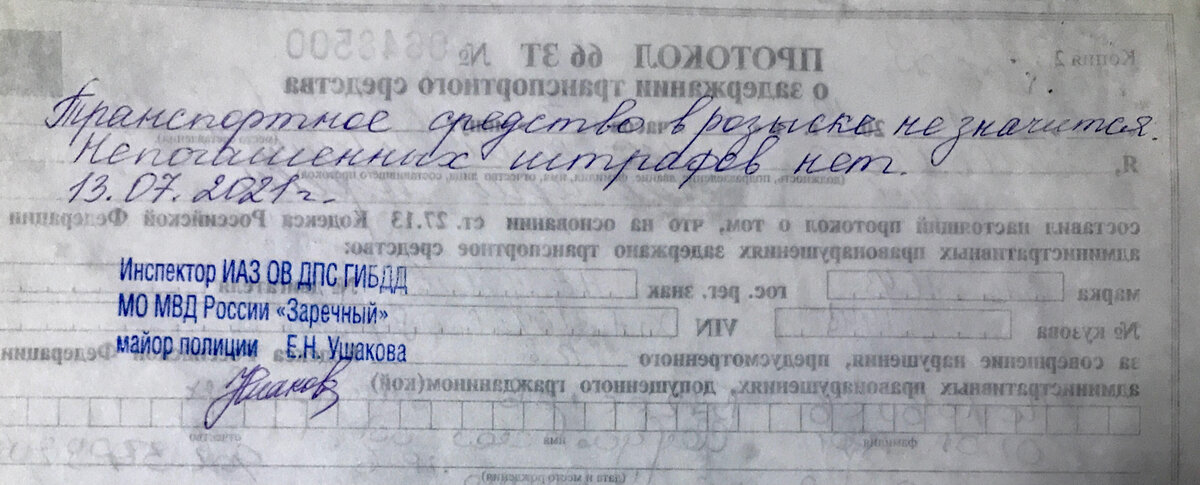 Копия 2
ПРОТОКОЛ 66 ЗТ №
о задержании транспортного средства
Транспортное средство в розыске не значится.
Непогашенных штрафов нет.
Я,
(должность, подразделение, звание, фамилия, имя, отчество лица, составившего протокол)
13.07.2021г.
составил настоящий протокол о том, что на основании ст. 27.13 Кодекса Российской Федерации
административных правонарушениях задержано транспортное средство:
Инспектор ИАЗ ОВ ДПС ГИБДД
марка гос. рег. знак
МО МВД России «Заречный»
№ кузова VIN
майор полиции Е.Н. Ушакова
за совершение нарушения, предусмотренного Федерации
административных правонарушениях, допущенного гражданином(кой)
фамилия имя отчество
(дата и место рождения)